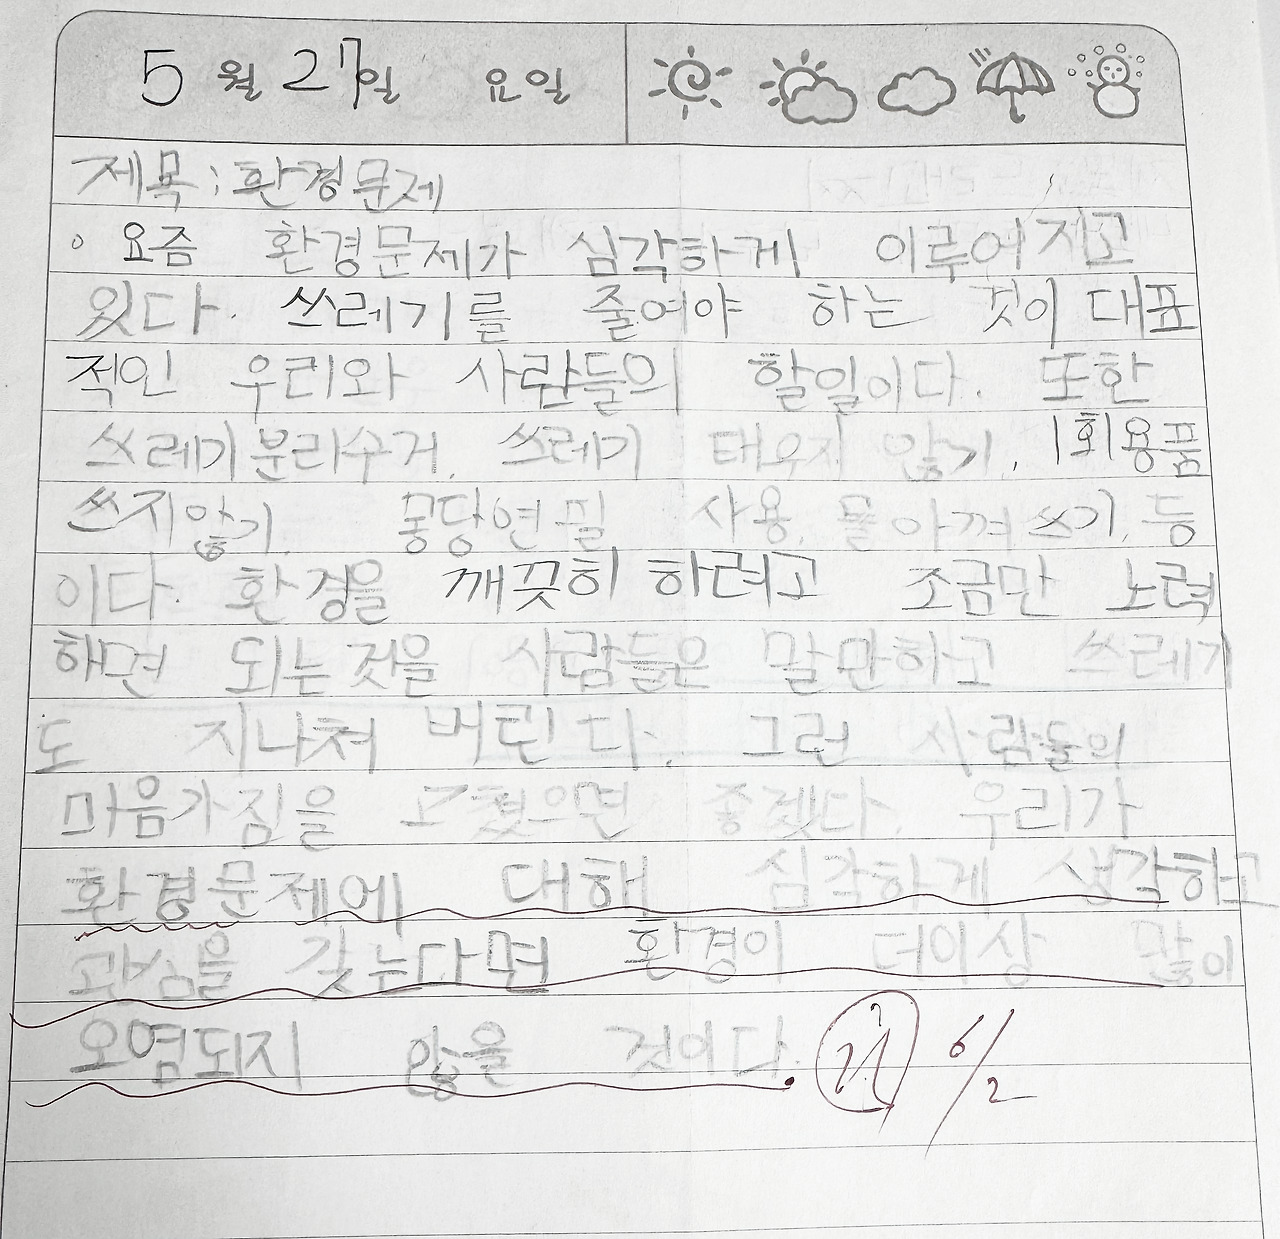 5월 27일 요일
제목 : 환경문제
요즘 환경문제가 심각하게 이루어지고
있다. 쓰레기를 줄여야 하는 것이 대표
적인 우리와 사람들의 할일이다. 또한
쓰레기분리수거, 쓰레기 태우지 않기, 1회용품
쓰지않기, 몽당연필 사용, 물 아껴쓰기, 등
이다. 환경을 깨끗히 하려고 조금만 노력
해면 되는것을 사람들은 말만하고 쓰레기
도 지나쳐 버린다. 그런 사람들의
마음가짐을 고쳤으면 좋겠다. 우리가
환경문제에 대해 심각하게 생각하고
관심을 갖는다면 환경이 더이상 많이
오염되지 않을 것이다. 6/2